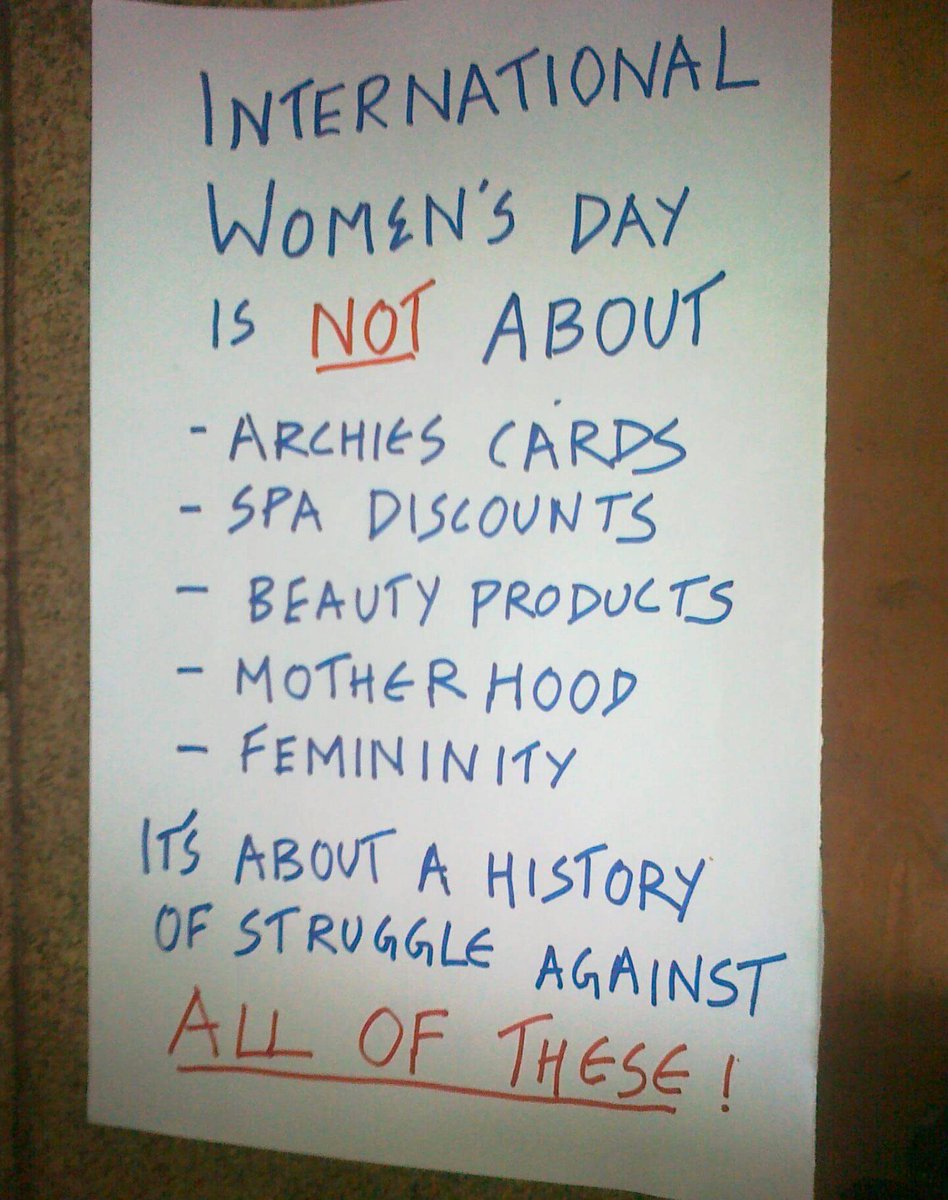 INTERNATIONAL
WOMEN'S DAY
IS NOT ABOUT
- ARCHIES CARDS
- SPA DISCOUNTS
- BEAUTY PRODUCTS
- MOTHERHOOD
- FEMININITY
IT'S ABOUT A HISTORY
OF STRUGGLE AGAINST
ALL OF THESE!